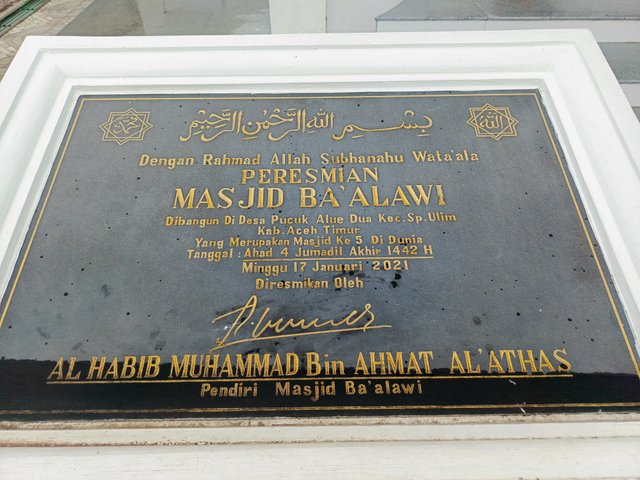 محمد
بسم الله الرحمن الرحيم
الله
Dengan Rahmad Allah Subhanahu Wata'ala
PERESMIAN
MASJID BA'ALAWI
Dibangun Di Desa Pucuk Alue Dua Kec. Sp. Ulim
Kab. Aceh Timur
Yang Merupakan Masjid Ke 5 Di Dunia
Tanggal : Ahad 4 Jumadil Akhir 1442 H
Minggu 17 Januari 2021
Diresmikan Oleh
AL HABIB MUHAMMAD Bin AHMAT AL'ATHAS
Pendiri Masjid Ba'alawi